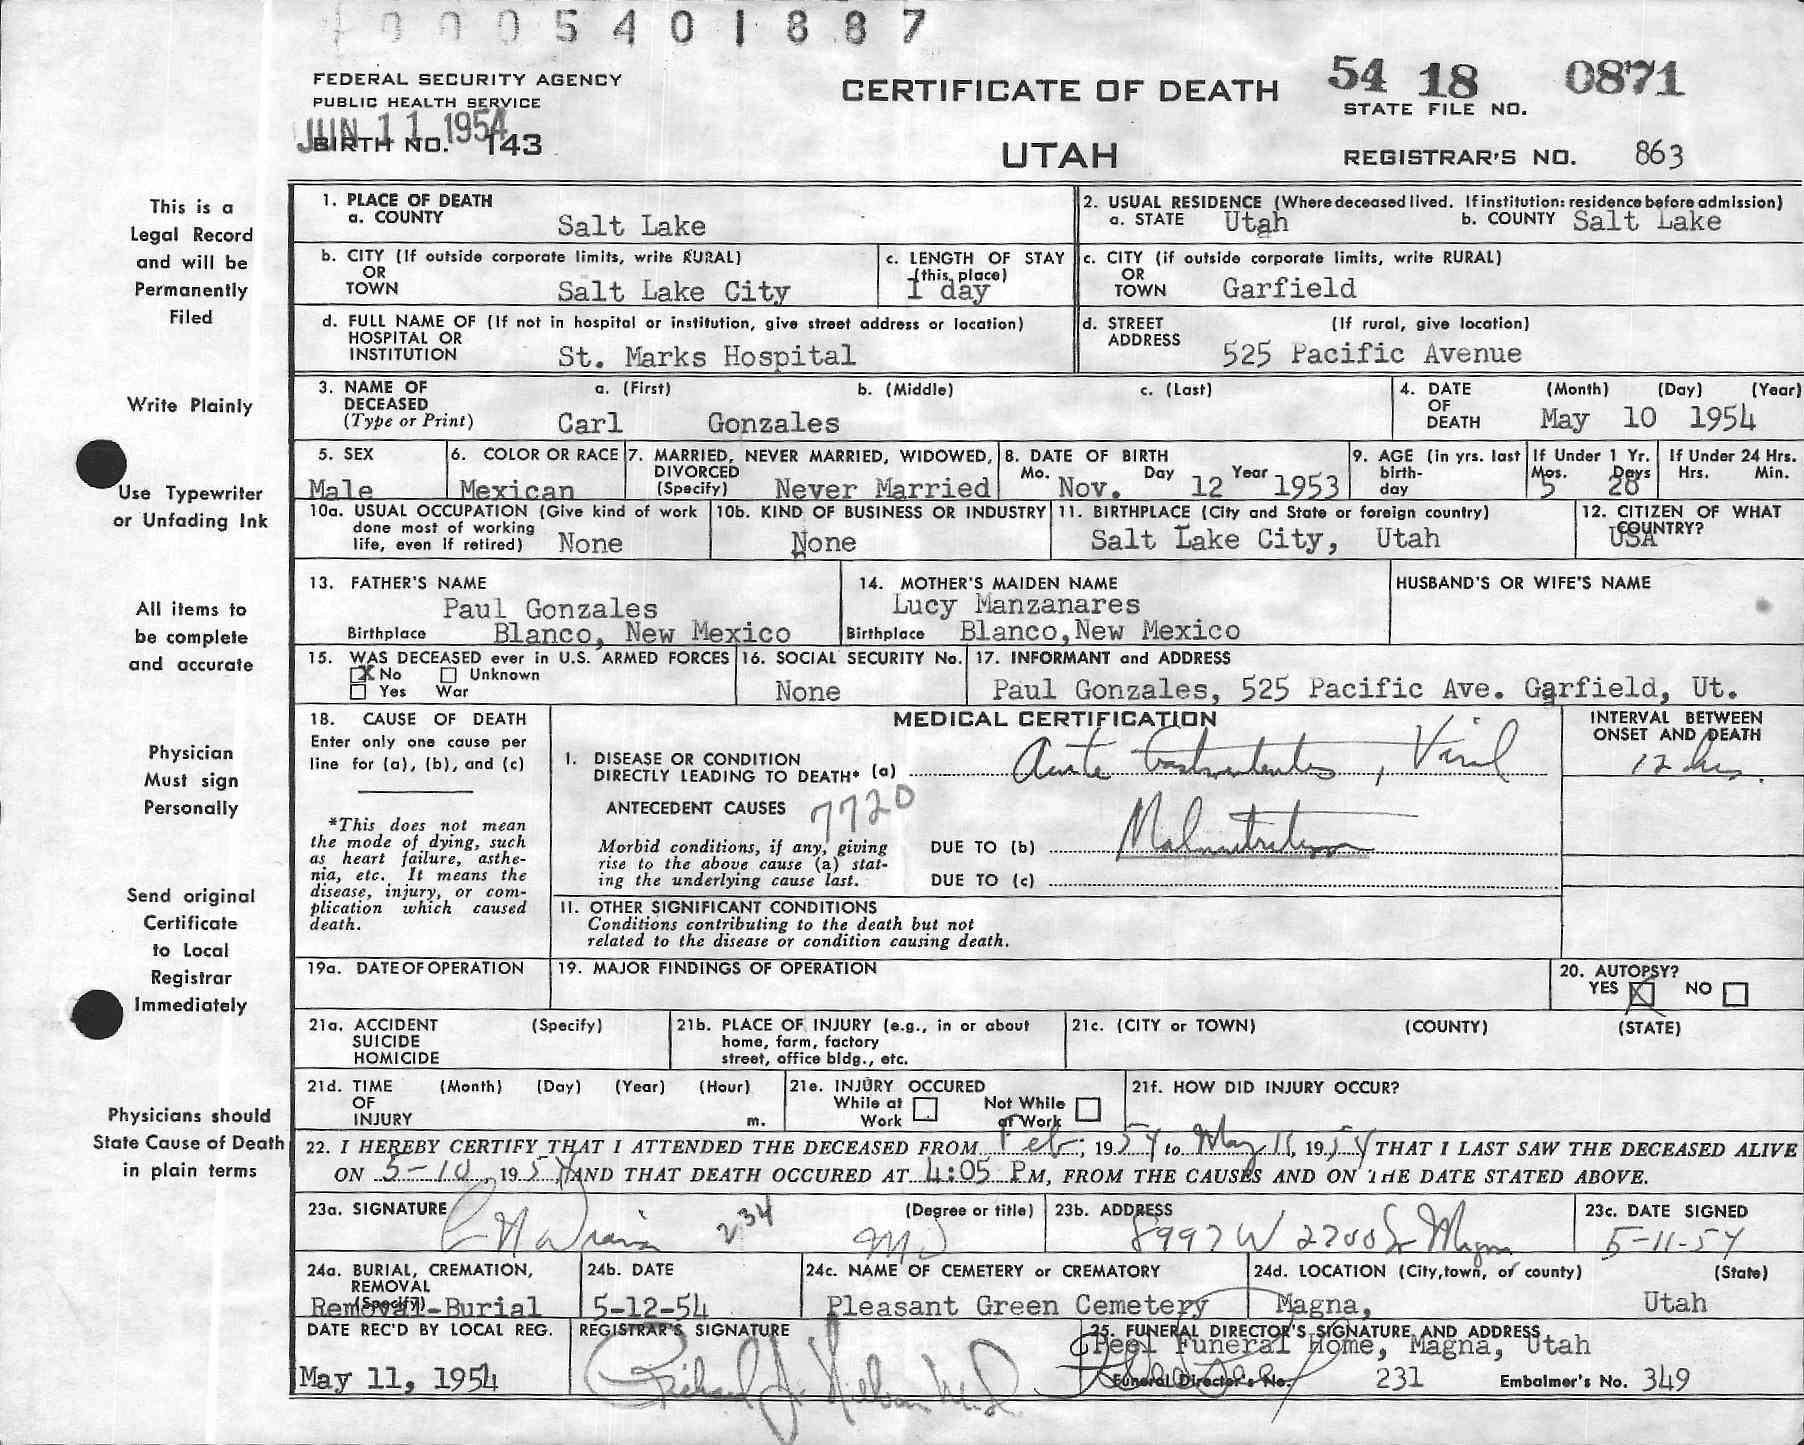 0005401887
FEDERAL SECURITY AGENCY
PUBLIC HEALTH SERVICE
JUN 11 1954
BIRTH NO. 143
CERTIFICATE OF DEATH
UTAH
54 18 0871
STATE FILE NO.
REGISTRAR'S NO. 863
This is a
Legal Record
and will be
Permanently
Filed
Write Plainly
Use Typewriter
or Unfading Ink
All items to
be complete
and accurate
Physician
Must sign
Personally
Send original
Certificate
to Local
Registrar
Immediately
Physicians should
State Cause of Death
in plain terms
1. PLACE OF DEATH
a. COUNTY Salt Lake
2. USUAL RESIDENCE (Where deceased lived. If institution: residence before admission)
a. STATE Utah b. COUNTY Salt Lake
b. CITY (If outside corporate limits, write RURAL)
OR
TOWN Salt Lake City
c. LENGTH OF STAY
(this place)
1 day
c. CITY (if outside corporate limits, write RURAL)
OR
TOWN Garfield
d. FULL NAME OF (If not in hospital or institution, give street address or location)
HOSPITAL OR
INSTITUTION St. Marks Hospital
d. STREET (If rural, give location)
ADDRESS
525 Pacific Avenue
3. NAME OF a. (First) b. (Middle) c. (Last)
DECEASED
(Type or Print) Carl Gonzales
4. DATE (Month) (Day) (Year)
OF
DEATH May 10 1954
5. SEX
Male
6. COLOR OR RACE
Mexican
7. MARRIED, NEVER MARRIED, WIDOWED,
DIVORCED
(Specify) Never Married
8. DATE OF BIRTH
Mo. Day Year
Nov. 12 1953
9. AGE (in yrs. last
birth-
day
If Under 1 Yr.
Mos. Days
5 28
If Under 24 Hrs.
Hrs. Min.
10a. USUAL OCCUPATION (Give kind of work
done most of working
life, even if retired) None
10b. KIND OF BUSINESS OR INDUSTRY
None
11. BIRTHPLACE (City and State or foreign country)
Salt Lake City, Utah
12. CITIZEN OF WHAT
COUNTRY?
USA
13. FATHER'S NAME
Paul Gonzales
Birthplace Blanco, New Mexico
14. MOTHER'S MAIDEN NAME
Lucy Manzanares
Birthplace Blanco, New Mexico
HUSBAND'S OR WIFE'S NAME
15. WAS DECEASED ever in U.S. ARMED FORCES
X No Unknown
Yes War
16. SOCIAL SECURITY No.
None
17. INFORMANT and ADDRESS
Paul Gonzales, 525 Pacific Ave. Garfield, Ut.
18. CAUSE OF DEATH
Enter only one cause per
line for (a), (b), and (c)
*This does not mean
the mode of dying, such
as heart failure, asthe-
nia, etc. It means the
disease, injury, or com-
plication which caused
death.
MEDICAL CERTIFICATION
I. DISEASE OR CONDITION
DIRECTLY LEADING TO DEATH* (a) Acute Gastroenteritis, Viral
ANTECEDENT CAUSES 7720
Morbid conditions, if any, giving
rise to the above cause (a) stat-
ing the underlying cause last.
DUE TO (b) Malnutrition
DUE TO (c)
INTERVAL BETWEEN
ONSET AND DEATH
12 hrs.
11. OTHER SIGNIFICANT CONDITIONS
Conditions contributing to the death but not
related to the disease or condition causing death.
19a. DATE OF OPERATION
19. MAJOR FINDINGS OF OPERATION
20. AUTOPSY?
YES X NO
21a. ACCIDENT (Specify)
SUICIDE
HOMICIDE
21b. PLACE OF INJURY (e.g., in or about
home, farm, factory
street, office bldg., etc.
21c. (CITY or TOWN) (COUNTY) (STATE)
21d. TIME (Month) (Day) (Year) (Hour)
OF
INJURY m.
21e. INJURY OCCURED
While at Work
Not While at Work
21f. HOW DID INJURY OCCUR?
22. I HEREBY CERTIFY THAT I ATTENDED THE DECEASED FROM Feb, 1954 to May 11, 1954 THAT I LAST SAW THE DECEASED ALIVE
ON 5-10, 1954 AND THAT DEATH OCCURED AT 4:05 PM, FROM THE CAUSES AND ON THE DATE STATED ABOVE.
23a. SIGNATURE 234 (Degree or title) MD
23b. ADDRESS
8997 W 2700 S Magna
23c. DATE SIGNED
5-11-54
24a. BURIAL, CREMATION,
REMOVAL
(Specify)
Removal-Burial
24b. DATE
5-12-54
24c. NAME OF CEMETERY or CREMATORY
Pleasant Green Cemetery
24d. LOCATION (City, town, or county) (State)
Magna, Utah
DATE REC'D BY LOCAL REG.
May 11, 1954
REGISTRAR'S SIGNATURE
25. FUNERAL DIRECTOR'S SIGNATURE AND ADDRESS
Peel Funeral Home, Magna, Utah
Funeral Director's No. 231 Embalmer's No. 349